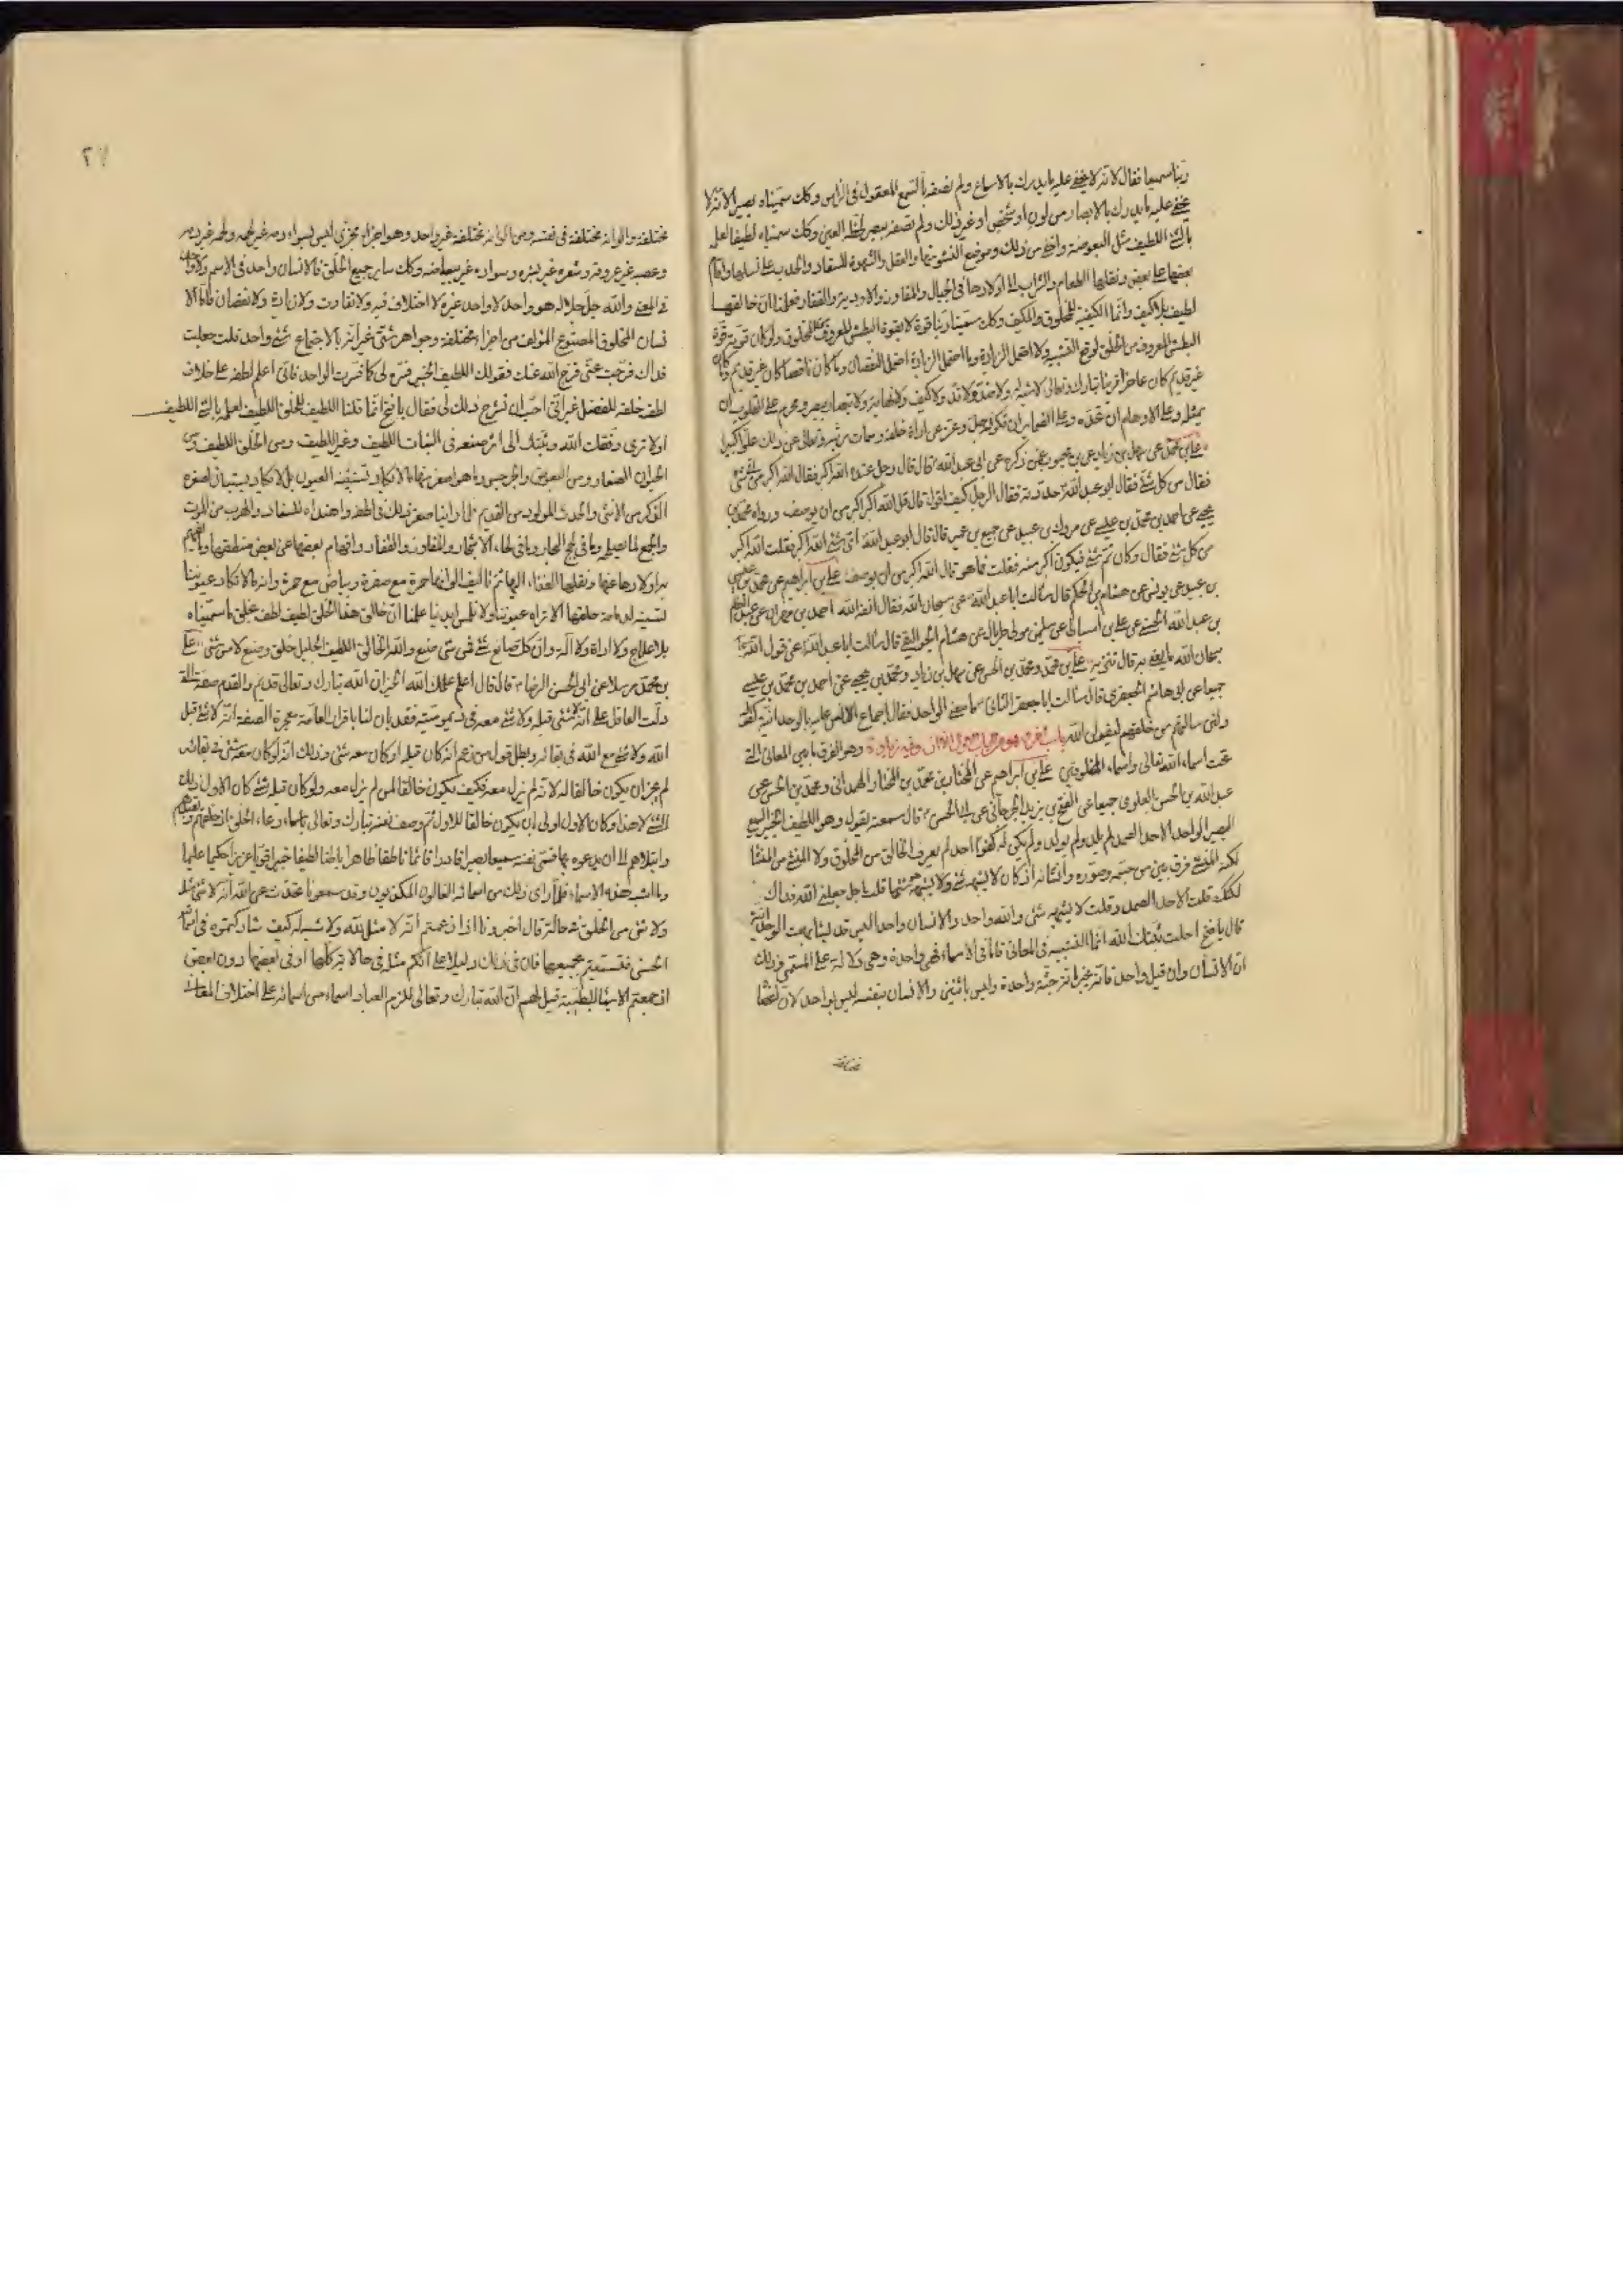 ربنا سميعا فقال لانه لا يخفى عليه ما يدرك بالاسماع ولم نصفه بالسمع المعقول فى الراس وكك سميناه بصيرا لانه لا
يخفى عليه ما يدرك بالابصار من لون او شخص او غير ذلك ولم نصفه ببصر لحظه العين وكك سميناه لطيفا لعلمه
بالشئ اللطيف مثل البعوضة واخفى من ذلك وموضع النشو منها والعقل والشهوة للسفاد والحدب على نسلها واقام
بعضها على بعض ونقلها الطعام والشراب الى اولادها فى الجبال والمفاوز والاودية والقفار فعلمنا ان خالقها
لطيف بلا كيف وانما الكيفية للمخلوق المكيف وكك سمينا ربنا قويا لا بقوة البطش المعروف من المخلوق ولو كان قوته قوة
البطش المعروف من الخلق لوقع التشبيه ولاحتمل الزيادة وما احتمل الزيادة احتمل النقصان وما كان ناقصا كان غير قديم وما كان
غير قديم كان عاجزا فربنا تبارك وتعالى لا شبه له ولا ضد ولا ند ولا كيف ولا نهاية ولا تبصار بصر ومحرم على القلوب ان
تمثله وعلى الاوهام ان تحده وعلى الضماير ان تكونه جل وعز عن اداة خلقه وسمات بريته وتعالى عن ذلك علوا كبيرا
على بن محمد عن سهل بن زياد عن ابن محبوب عمن ذكره عن ابى عبد الله ع قال قال رجل عنده الله اكبر فقال الله اكبر من اى شئ
فقال من كل شئ فقال ابو عبد الله حددته فقال الرجل كيف اقول قال قل الله اكبر من ان يوصف ورواه محمد بن
يحيى عن احمد بن محمد بن عيسى عن مروك بن عبيد عن جميع بن عمير قال قال ابو عبد الله اى شئ الله اكبر فقلت الله اكبر
من كل شئ فقال وكان ثم شئ فيكون اكبر منه فقلت فما هو قال الله اكبر من ان يوصف على بن ابراهيم عن محمد بن عيسى
بن عبيد عن يونس عن هشام بن الحكم قال سالت ابا عبد الله ع عن سبحان الله فقال انفة الله احمد بن مهران عن عبد العظيم
بن عبد الله الحسنى عن على بن اسباط عن سليمن مولى طربال عن هشام الجواليقى قال سالت ابا عبد الله ع عن قول الله عز
سبحان الله ما يعنى به قال تنزيهه على بن محمد ومحمد بن الحسن عن سهل بن زياد ومحمد بن يحيى عن احمد بن محمد بن عيسى
جميعا عن ابى هاشم الجعفرى قال سالت ابا جعفر الثانى ما معنى الواحد فقال اجماع الالسن عليه بالوحدانية كقوله
ولئن سالتهم من خلقهم ليقولن الله باب اخر وهو من الباب الاول الا ان فيه زيادة وهو الفرق ما بين المعانى التى
تحت اسماء الله تعالى واسماء المخلوقين على بن ابراهيم عن المختار بن محمد بن المختار الهمدانى ومحمد بن الحسن عن
عبد الله بن الحسن العلوى جميعا عن الفتح بن يزيد الجرجانى عن ابى الحسن ع قال سمعته يقول وهو اللطيف الخبير السميع
البصير الواحد الاحد الصمد لم يلد ولم يولد ولم يكن له كفوا احد لم يعرف الخالق من المخلوق ولا المنشئ من المنشا
لكنه المنشئ فرق بين من جسمه وصوره وانشاه اذ كان لا يشبهه شئ ولا يشبه هو شيئا قلت اجل جعلنى الله فداك
لكنك قلت الاحد الصمد وقلت لا يشبهه شئ والله واحد والانسان واحد اليس قد تشابهت الوحدانية
قال يا فتح احلت ثبتك الله انما التشبيه فى المعانى فاما فى الاسماء فهى واحدة وهى دلالة على المسمى وذلك
ان الانسان وان قيل واحد فانه يخبر انه جثة واحدة وليس باثنين والانسان نفسه ليس بواحد لان اعضاه
مختلفة
٢٧
مختلفة والوانه مختلفة فى نفسه ومن الوانه مختلفة غير واحد وهو اجزاء مجزى ليس بسواء دمه غير لحمه ولحمه غير دمه
وعصبه غير عروقه وشعره غير بشره وسواده غير بياضه وكك ساير جميع الخلق فالانسان واحد فى الاسم ولا واحد
فى المعنى والله جل جلاله هو واحد لا واحد غيره لا اختلاف فيه ولا تفاوت ولا زيادة ولا نقصان فاما الا
نسان المخلوق المصنوع المؤلف من اجزاء مختلفة وجواهر شتى غير انه بالاجتماع شئ واحد قلت جعلت
فداك فرجت عنى فرج الله عنك فقولك اللطيف الخبير فسره لى كما فسرت الواحد فانى اعلم لطفه على خلاف
لطف خلقه للفصل غير انى احب ان تشرح ذلك لى فقال يا فتح انما قلنا اللطيف للخلق اللطيف لعلمه بالشئ اللطيف
اولا ترى وفقك الله وثبتك الى اثر صنعه فى النبات اللطيف وغير اللطيف ومن الخلق اللطيف ومن
الحيوان الصغار ومن البعوض والجرجس وما هو اصغر منها ما لا يكاد تستبينه العيون بل لا يكاد يستبان لصغره
الذكر من الانثى والحدث المولود من القديم فلما راينا صغر ذلك فى لطفه واهتداه للسفاد والهرب من الموت
والجمع لما يصلحه وما فى لجج البحار وما فى لحاء الاشجار والمفاوز والقفار وافهام بعضها عن بعض منطقها وما يفهم
به اولادها عنها ونقلها الغذاء اليها ثم تاليف الوانها حمرة مع صفرة وبياض مع حمرة وانه ما لا تكاد عيوننا
تستبينه لدمامة خلقها لا تراه عيوننا ولا تلمس ايدينا علمنا ان خالق هذا الخلق لطيف لطف بخلق ما سميناه
بلا علاج ولا اداة ولا آلة وان كل صانع شئ فمن شئ صنع والله الخالق اللطيف الجليل خلق وصنع لا من شئ على
بن محمد مرسلا عن ابى الحسن الرضا ع قال قال اعلم علمك الله الخير ان الله تبارك وتعالى قديم والقدم صفته التى
دلت العاقل على انه لا شئ قبله ولا شئ معه فى ديموميته فقد بان لنا باقرار العامة معجزة الصفة انه لا شئ قبل
الله ولا شئ مع الله فى بقائه وبطل قول من زعم انه كان قبله او كان معه شئ وذلك انه لو كان معه شئ فى بقائه
لم يجز ان يكون خالقا له لانه لم يزل معه فكيف يكون خالقا لمن لم يزل معه ولو كان قبله شئ كان الاول ذلك
الشئ لا هذا وكان الاول اولى ان يكون خالقا للاول ثم وصف نفسه تبارك وتعالى باسماء دعاء الخلق اذ خلقهم وتعبدهم
وابتلاهم الى ان يدعوه بها فسمى نفسه سميعا بصيرا قادرا قائما ناطقا ظاهرا باطنا لطيفا خبيرا قويا عزيزا حكيما عليما
وما اشبه هذه الاسماء فلما راى ذلك من اسمائه الغالون المكذبون وقد سمعونا نحدث عن الله انه لا شئ مثله
ولا شئ من الخلق فى حاله قال اخبرونا اذا زعمتم انه لا مثل لله ولا شبه له كيف شاركتموه فى اسمائه
الحسنى فتسميتم بجميعها فان فى ذلك دليلا على انكم مثله فى حالاته كلها او فى بعضها دون بعض
اذ جمعتم الاسماء الطيبة قيل لهم ان الله تبارك وتعالى الزم العباد اسماء من اسمائه على اختلاف المعانى